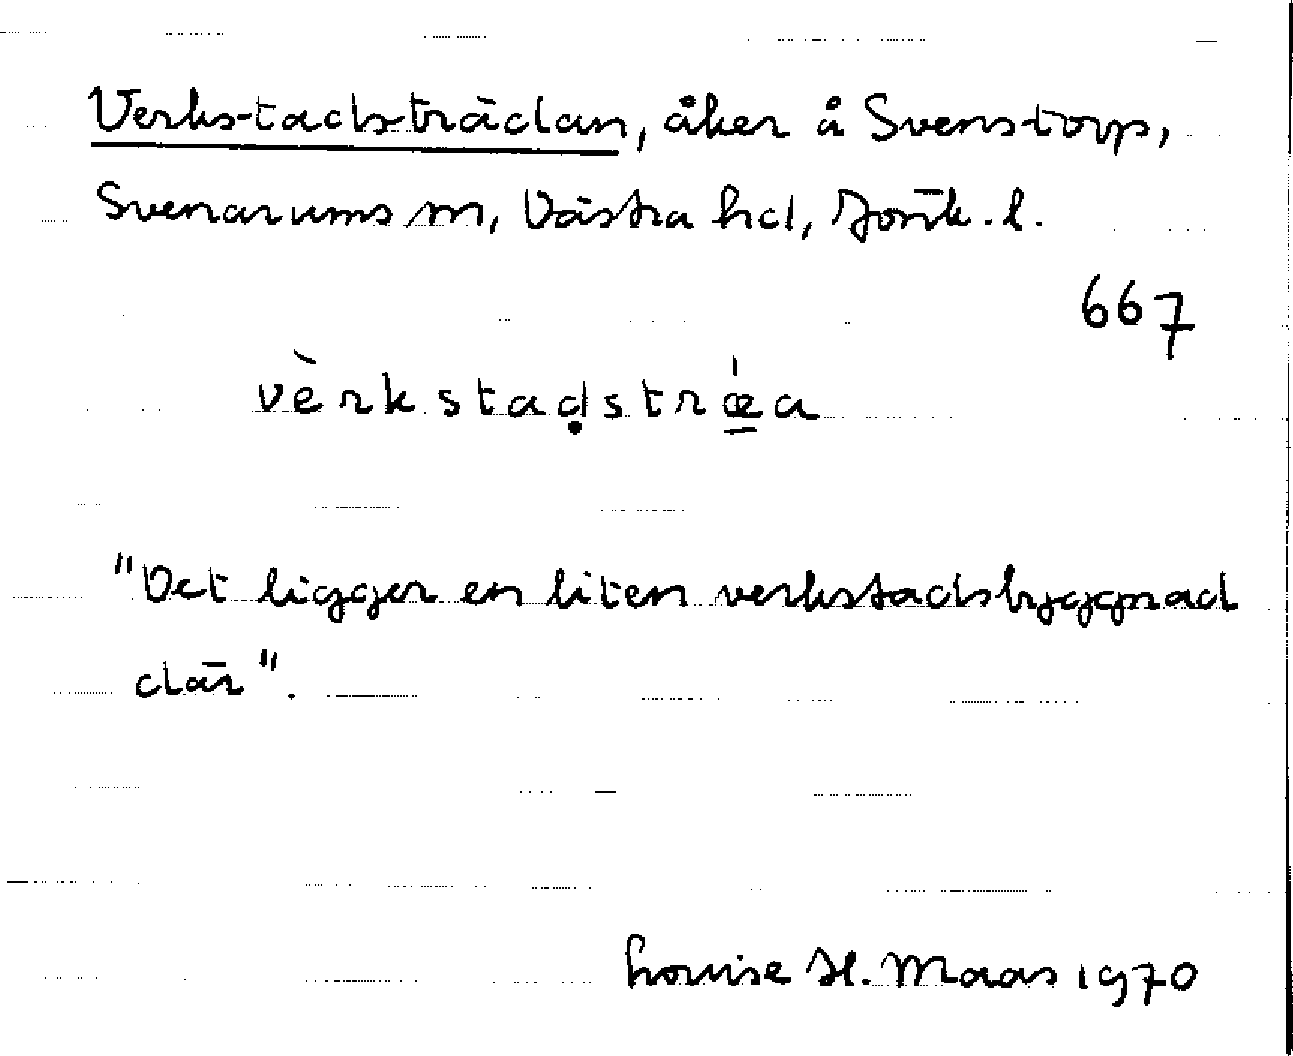 Verkstadsträdan, åker å Svenstorp,
Svenarums sn, Västra hd, Jönk. l.
667
vèrkstadṣtrǽa
"Det ligger en liten verkstadsbyggnad
där".
Louise H. Maas 1970